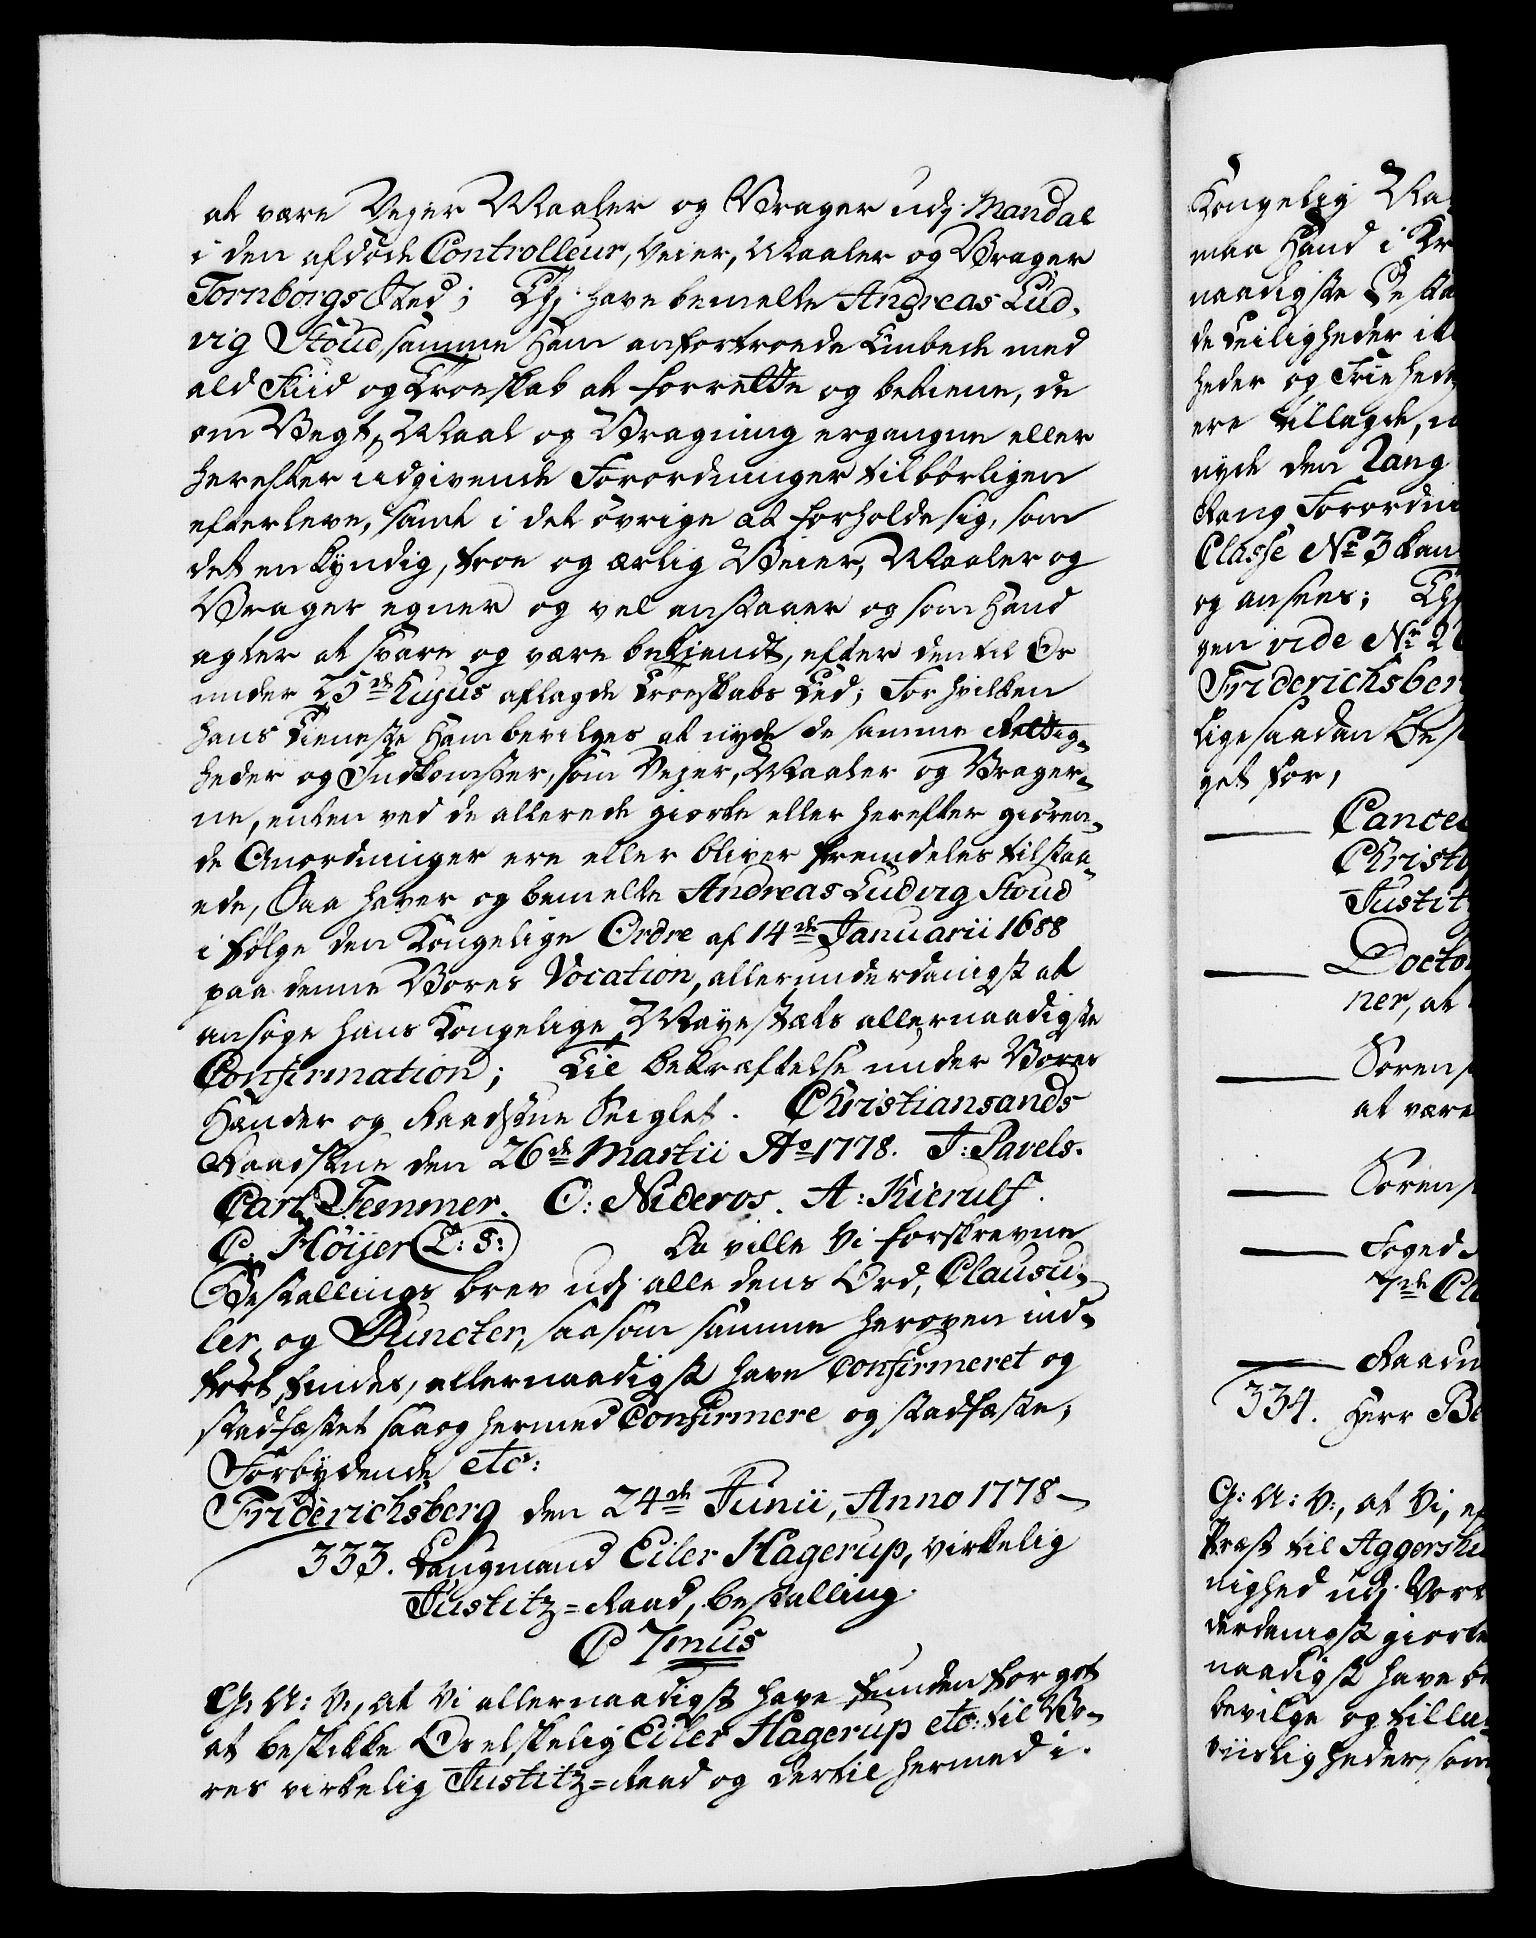 at være Vejer Maaler og Vrager udj Mandal
i den afdøde Controlleur, Veier, Maaler og Vrager
Tornborgs Sted; Thj have bemelte Andreas Lud-
vig Stoud samme Ham anfortroede Embede med
ald Fliid og Troeskab at forrette og betiene, de
om Vegt, Maal og Vragning ergangne eller
herefter udgivende Forordninger tilbørligen
efterleve, samt i det øvrige at forholde sig, som
det en kyndig, troe og ærlig Veier, Maaler og
Vrager egner og vel anstaaer og som Hand
agter at svare og være bekiendt, efter den til Os
under 25de hujus aflagde Troeskabs Eed; For hvilken
hans Tieneste Ham bevilges at nyde de samme Rettig-
heder og Indkomster, som Vejer, Maaler og Vrager-
ne, enten ved de allerede giorte eller herefter giøren-
de Anordninger ere eller bliver fremdeles tilstaa-
ede, Saa haver og bemelte Andreas Ludvig Stoud
i følge den Kongelige Ordre af 14de Januarii 1688
paa denne Vores Vocation, allerunderdanigst at
ansøge hans Kongelige Mayestæts allernaadigste
Confirmation; Til bekræftelse under Vores
Hænder og Raadstue Seiglet. Christiansands
Raadstue den 26de Martii Ao 1778. J: Pavels.
Carl Femmer. O: Nideros. A: Kierulf.
C. Høijer (L: S:) Da ville Vi forskrevne
Bestallings brev udj alle dens Ord, Clausu-
ler og Puncter, saasom samme heroven ind-
ført findes, allernaadigst have Confirmeret og
stadfæstet saa og hermed Confirmere og stadfæste;
Forbydende etc:
Friderichsberg den 24de Junii, Anno 1778-
333. Laugmand Eiler Hagerup, virkelig
Justitz=Raad, bestalling.
C 7mus
G: A: V:, at Vi allernaadigst have funden for got
at beskikke Os elskelig Eiler Hagerup etc: til Vo-
res virkelig Justitz=Raad og dertil hermed i.
Kongelig
maa Hand i
naadigste
de Leiligheder
heder og
ere tillagde,
nyde den Rang
Rang
Classe No 3 kan
og ansees;
gen vide Nr
lige saadan
get for,
ner, at
Søren
at være
Søren
Foged
7de
334. Herr
G: A: V:, at Vi,
Præst til
nighed udj
derdanigst giorte
naadigst have
bevilge og
viisligheder, som